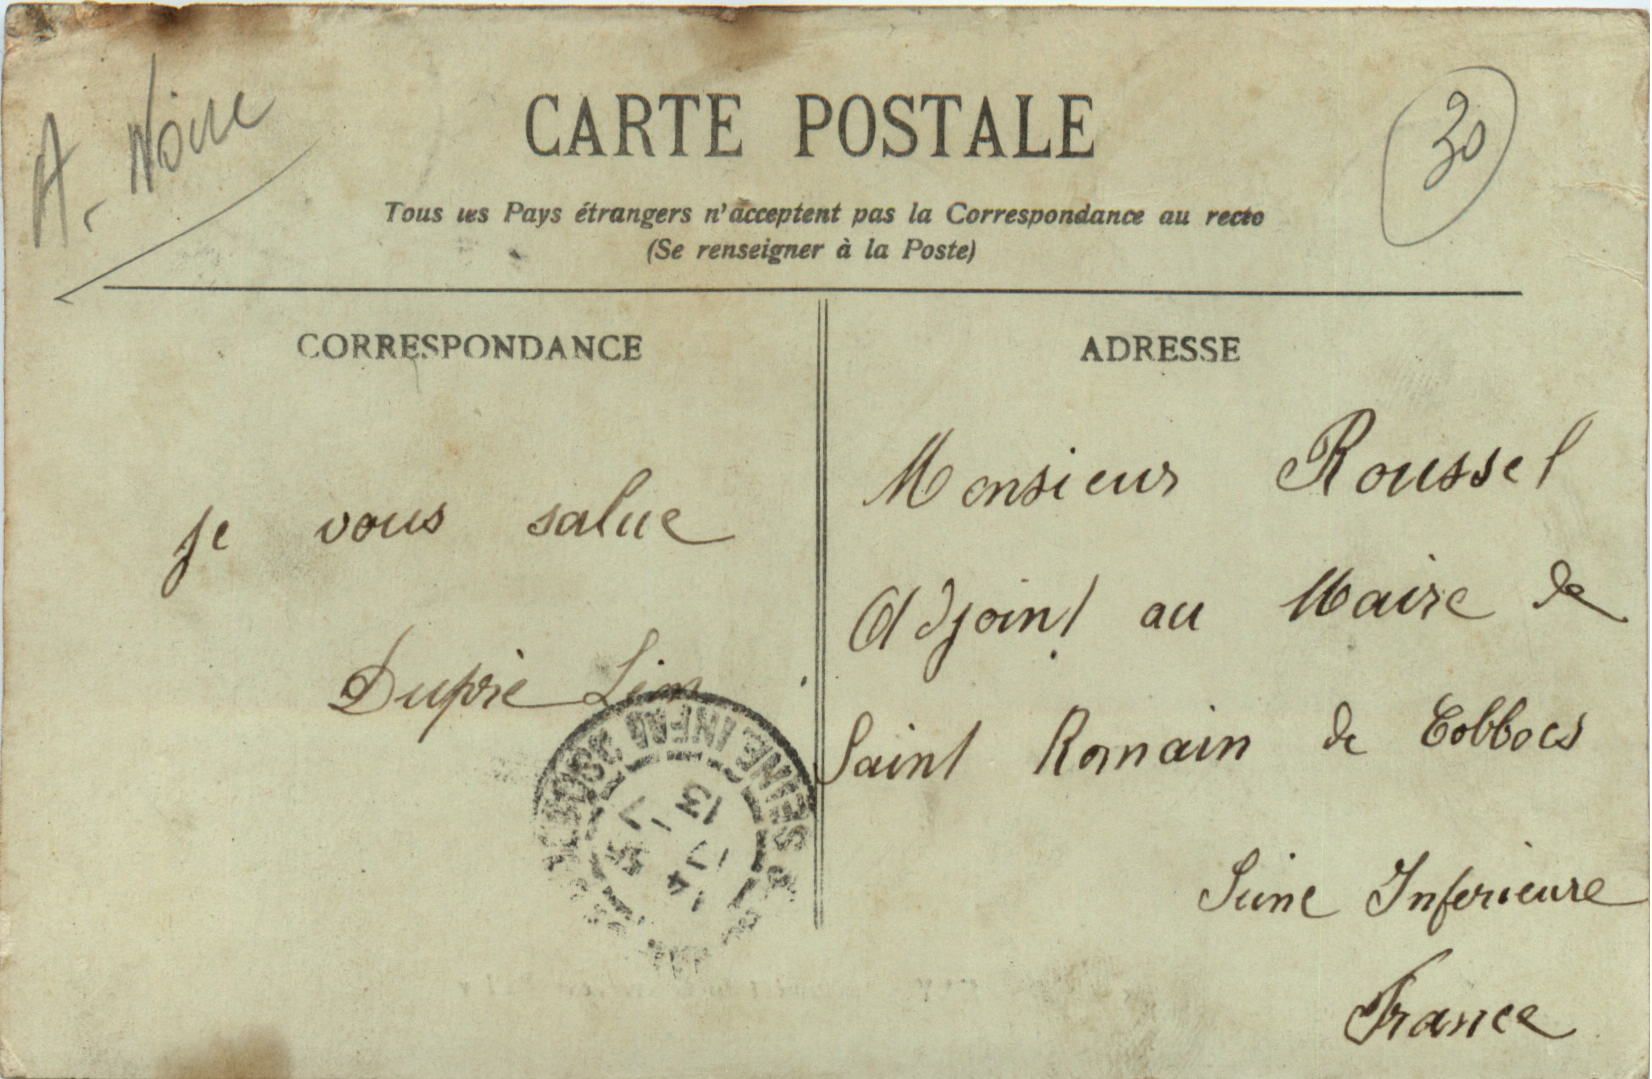 A. Noire
CARTE POSTALE
30
Tous les Pays étrangers n'acceptent pas la Correspondance au recto
(Se renseigner à la Poste)
CORRESPONDANCE
je vous salue
Dupríe
SEINE INFRE
13
7
17
14
ADRESSE
Monsieur Roussel
Adjoint au Maire de
Saint Romain de Colbocs
Seine Inferieure
France